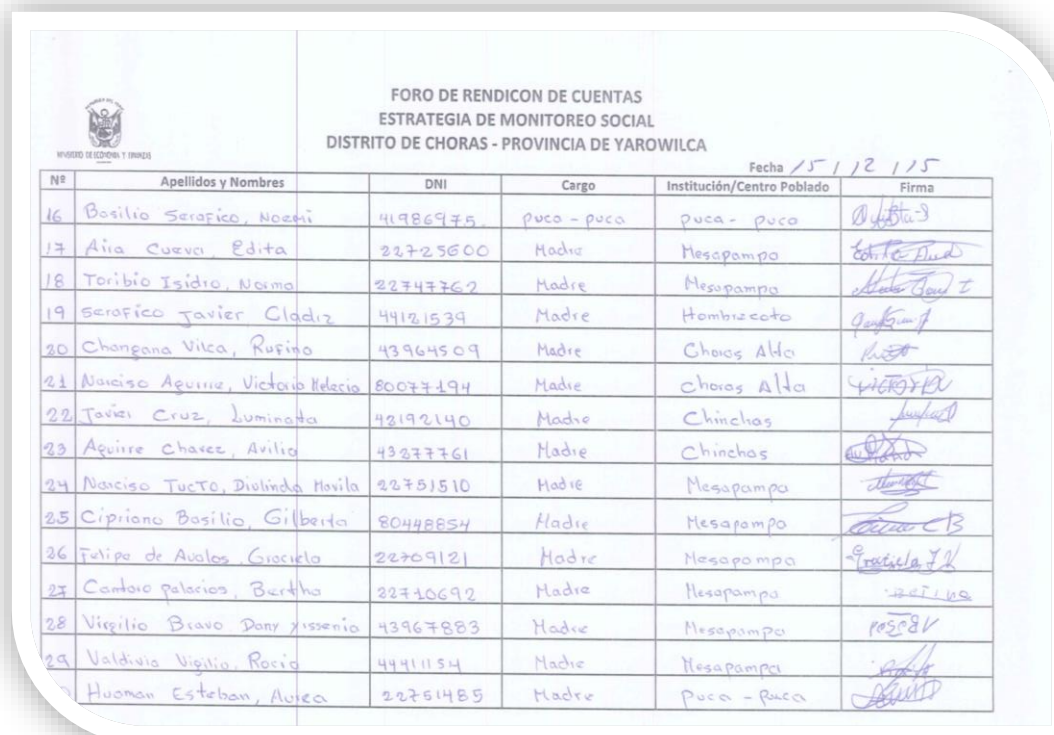 MINISTERIO DE ECONOMIA Y FINANZAS
FORO DE RENDICON DE CUENTAS
ESTRATEGIA DE MONITOREO SOCIAL
DISTRITO DE CHORAS - PROVINCIA DE YAROWILCA
Fecha 15 / 12 / 15
Nº Apellidos y Nombres DNI Cargo Institución/Centro Poblado Firma
16 Basilio Serafico, Noemi 41986975 puca - puca puca - puca
17 Aira Cueva, Edita 22725600 Madre Mesapampa
18 Toribio Isidro, Norma 22747762 Madre Mesapampa
19 Serafico Javier Cladiz 44121539 Madre Hombrecoto
20 Changana Vilca, Rufina 43964509 Madre Choras Alto
21 Narciso Aguirre, Victoria Melecia 80077194 Madre Choras Alto VICTORIA
22 Javier Cruz, Luminata 42192140 Madre Chinchas
23 Aguirre Chavez, Avilia 43277761 Madre Chinchas
24 Narciso Tucto, Diolinda Mavila 22751510 Madre Mesapampa
25 Cipriano Basilio, Gilberta 80448854 Madre Mesapampa
26 Tulipa de Avalos, Graciela 22709121 Madre Mesapampa Graciela
27 Cantaro palacios, Bertha 22710692 Madre Mesapampa
28 Virgilio Bravo Dany yissenia 43967883 Madre Mesapampa
29 Valdivia Vigilio, Rocio 44411154 Madre Mesapampa
Huaman Esteban, Aurea 22751485 Madre Puca - Puca